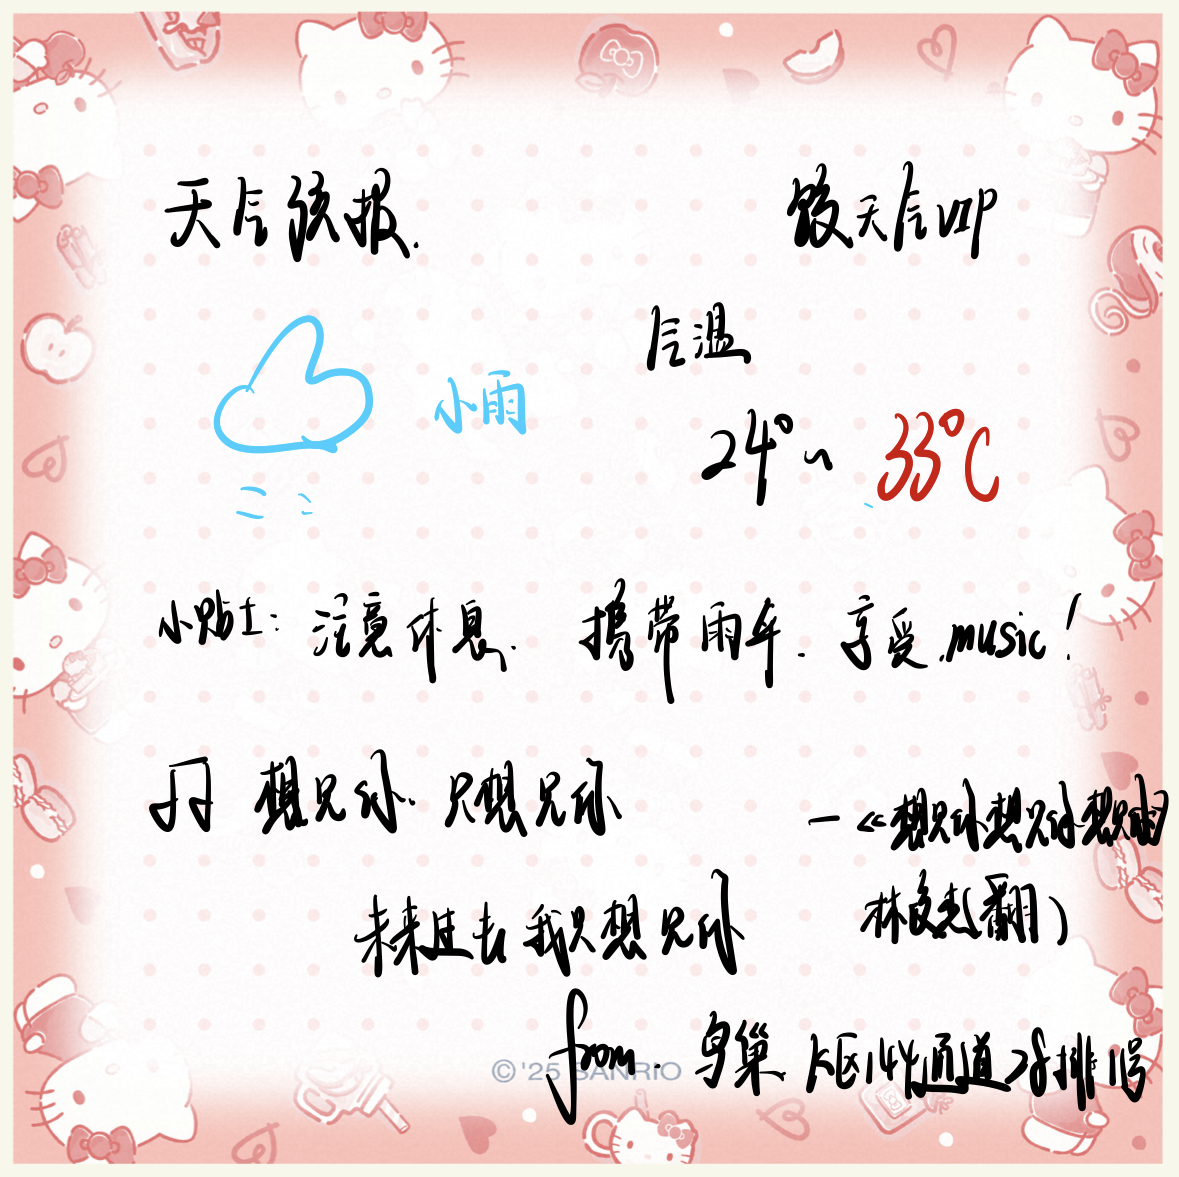 天气预报.
饺天气VIP
气温
小雨
24° ~ 33°C
小贴士: 注意休息. 携带雨伞. 享受 music!
想见你 只想见你
—《想见你想见你想见你》
未来过去 我只想见你
林俊杰(翻)
from. 鸟巢 K区144通道28排11号
© '25 SANRIO